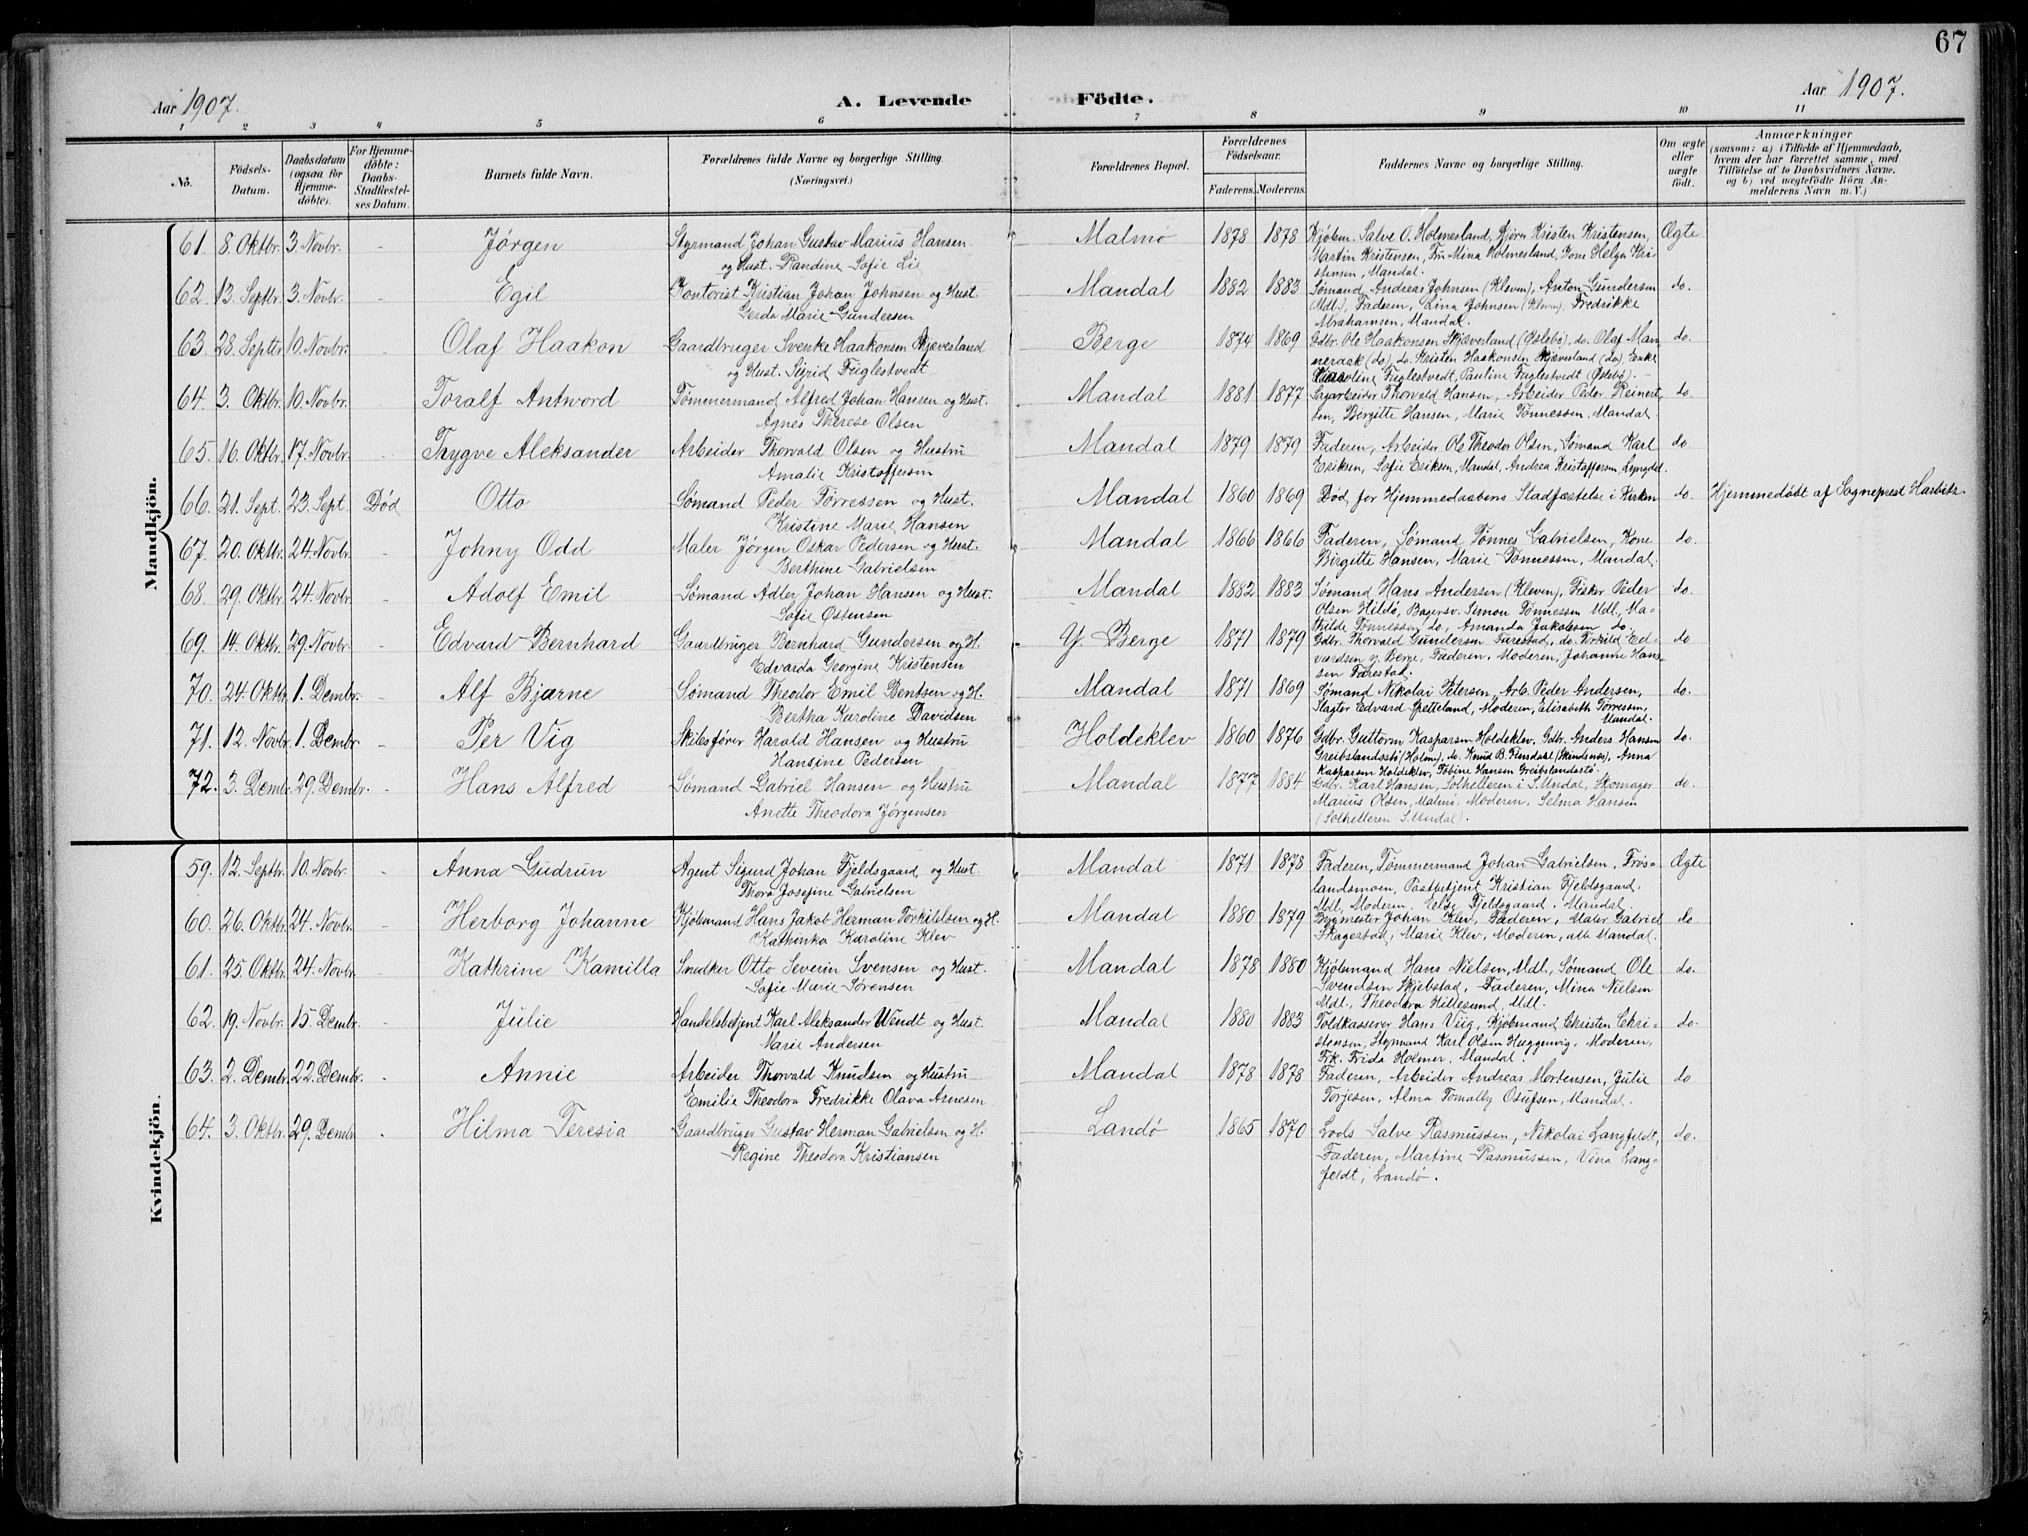 67
Aar 1907. A. Levende Födte. Aar 1907.
1 2 3 4 5 6 7 8 9 10 11
No.
Födsels-
Datum.
Daabsdatum
(ogsaa for
Hjemme-
döbte).
For Hjemme-
döbte:
Daabs-
Stadfæstel-
ses Datum.
Barnets fulde Navn.
Forældrenes fulde Navne og borgerlige Stilling.
(Næringsvei.)
Forældrenes Bopæl.
Forældrenes
Födselsaar.
Faderens. Moderens.
Faddernes Navne og borgerlige Stilling.
Om ægte
eller
uægte
födt.
Anmærkninger
(saasom: a) i Tilfælde af Hjemmedaab,
hvem der har forrettet samme, med
Tilföielse af to Daabsvidners Navne.
og b) ved uægtefödte Börn An-
melderens Navn m. V.)
Mandkjön.
61. 8 Oktbr. 3 Novbr. - Jørgen Styrmand Johan Gustav Marius Hansen Malmø 1878 1878 Kjøbm. Salve O. Holmesland, Bjørn Kristen Kristensen, Ægte
og Hust. Randine Sofie Lie Martin Kristensen, Fru Mina Holmesland, Kone Helga Kri-
stensen, Mandal.
62. 13. Septbr. 3. Novbr. - Egil Kontorist Kristian Johan Johnsen og Hust. Mandal 1882 1883 Sømand Andreas Johnsen (Kleven), Anton Gundersen do.
Gerda Marie Gundersen (Mdl.), Faderen, Lina Johnsen (Kleven), Fredrikke
Abrahamsen, Mandal.
63. 28. Septbr. 10. Novbr. - Olaf Haakon Gaardbruger Svenke Haakonsen Skjævesland Berge 1874 1869 Gdbr. Ole Haakonsen Skjæverland (Øslebø), do. Olaf Man- do.
og Hust. Sigrid Fuglestvedt neraak (do), do. Kristen Haakonsen Skjævesland (do), Enke
Karoline Fuglestvedt, Pauline Fuglestvedt (Øslebø).
64. 3. Oktbr. 10. Novbr. - Toralf Antword Tømmermand Alfred Johan Hansen og Hust. Mandal 1881 1877 Sagarbeider Thorvald Hansen, Arbeider Peder Reinert- do.
Agnes Therese Olsen sen, Bergitte Hansen, Marie Tønnessen, Mandal.
65. 16. Oktbr. 17. Novbr. - Trygve Aleksander Arbeider Thorvald Olsen og Hustru Mandal 1879 1879 Faderen, Arbeider Ole Theodor Olsen, Sømand Karl do
Amalie Kristoffersen Eriksen, Sofie Eriksen, Mandal, Andrea Kristoffersen, Lyngdal.
66. 21. Sept. 23. Sept. Død Otto Sømand Peder Tørressen og Hust. Mandal 1860 1869 Død før Hjemmedaabens Stadfæstelse i Kirken do. Hjemmedøbt af Sogneprest Harbitz.
Kristine Marie Hansen
67. 20. Oktbr. 24. Novbr. - Johny Odd Maler Jørgen Oskar Pedersen og Hust. Mandal 1866 1866 Faderen, Sømand Tønnes Gabrielsen, Kone do.
Berthine Gabrielsen Birgitte Hansen, Marie Tønnessen, Mandal.
68. 29. Oktbr. 24. Novbr. - Adolf Emil Sømand Adler Johan Hansen og Hust. Mandal 1882 1883 Sømand Hans Andersen (Kleven), Fisker Peder do.
Sofie Østensen Olsen Hildø, Bagersv. Simon Tønnessen Mdl., Ma-
thilde Tønnessen do, Amanda Jakobsen do.
69. 14. Oktbr. 29. Novbr. - Edvard Bernhard Gaardbruger Bernhard Gundersen og H. Y. Berge 1871 1879 Gdbr. Thorvald Gundersen Færestad, do. Torkild Ed- do
Edvarda Georgine Kristensen vardsen y. Berge, Faderen, Moderen, Johanne Hans-
sen Færestad.
70. 24. Oktbr. 1. Dembr. - Alf Bjarne Sømand Theodor Emil Bentsen og H. Mandal 1871 1869 Sømand Nikolai Petersen, Arb. Peder Andersen, do.
Bertha Karoline Davidsen Slagter Edvard Spetteland, Moderen, Elisabeth Tørressen,
Mandal.
71. 12. Novbr. 1. Dembr. - Per Vig Skibsfører Harald Hansen og Hustru Holdeklev 1860 1876 Gdbr. Guttorm Kaspersen Holdeklev, Gdbr. Anders Hansen do.
Hansine Pedersen Greibslandsstø (Holum), do. Knud B. Finsdal (Skindsnes), Anna
Kaspersen Holdeklev, Tobine Hansen Greibslandsstø
72. 3. Dembr. 29. Dembr. - Hans Alfred Sømand Gabriel Hansen og Hustru Mandal 1877 1884 Gdbr. Karl Hansen, Solhelleren i S. Undal, Skomager do.
Anette Theodora Jørgensen Marius Olsen, Malmø, Moderen, Selma Hansen
(Solhelleren S. Undal).
Kvindekjön.
59. 12. Septbr. 10. Novbr. - Anna Gudrun Agent Sigurd Johan Fjeldsgaard og Hust. Mandal 1871 1878 Faderen, Tømmermand Johan Gabrielsen, Frøs- Ægte
Thora Josefine Gabrielsen landsmoen, Postbetjent Kristian Fjeldsgaard,
Mdl., Moderen, Else Fjeldsgaard, Mandal.
60. 26. Oktbr. 24. Novbr. - Herborg Johanne Kjøbmand Hans Jakob Herman Torkildsen og H. Mandal 1880 1879 Bygmester Johan Klev, Faderen, Maler Gabriel do.
Kathinka Karoline Klev Skagestad, Marie Klev, Moderen, alle Mandal.
61. 25 Oktbr. 24. Novbr. - Kathrine Kamilla Snedker Otto Severin Svensen og Hust. Mandal 1878 1880 Kjøbmand Hans Nielsen, Mdl., Sømand Ole do.
Sofie Marie Sørensen Svendsen Skjebstad, Faderen, Mina Nielsen
Mdl., Theodora Hillesund, Mdl.
62. 19. Novbr. 15. Dembr. Julie Handelsbetjent Karl Aleksander Wendt og Hust. Mandal 1880 1883 Toldkasserer Hans Viig, Kjøbmand Christen Chri- do.
Marie Andersen stensen, Styrmand Karl Olsen Huggenvig, Moderen,
Frk. Frida Holmer, Mandal.
63. 2. Dembr. 22. Dembr. - Annie Arbeider Thorvald Knudsen og Hustru Mandal 1878 1878 Faderen, Arbeider Andreas Mortensen, Julie do
Emilie Theodora Fredrikke Olava Arnesen Torjesen, Alma Tomally Osufsen, Mandal.
64. 3. Oktbr. 29. Dembr. - Hilma Teresia Gaardbruger Gustav Herman Gabrielsen og H. Landø 1865 1870 Lods Salve Rasmussen, Nikolai Langfeldt, do.
Regine Theodora Kristiansen Faderen, Martine Rasmussen, Vina Lang-
feldt, Landø.